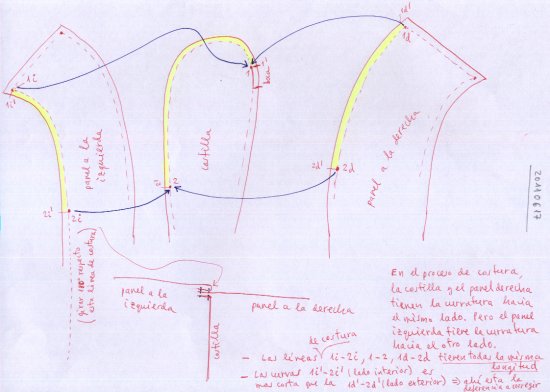 1d'
1d
1i
1i'
1
1'
boca
panel a la
izquierda
costilla
panel a la derecha
2d'
2d
2
2i'
2i
(girar 180 respecto
esta línea de costura)
20170617
panel a la
izquierda
panel a la derecha
costilla
En el proceso de costura,
la costilla y el panel derecha
tienen la curvatura hacia
el mismo lado. Pero el panel
izquierda tiene la curvatura
hacia el otro lado.
de costura
- Las líneas 1i-2i, 1-2, 1d-2d tienen todas la misma
longitud
- Las curvas 1i'-2i' (lado interior) es
mas corta que la 1d'-2d' (lado exterior) => ahí esta la
diferencia a corregir